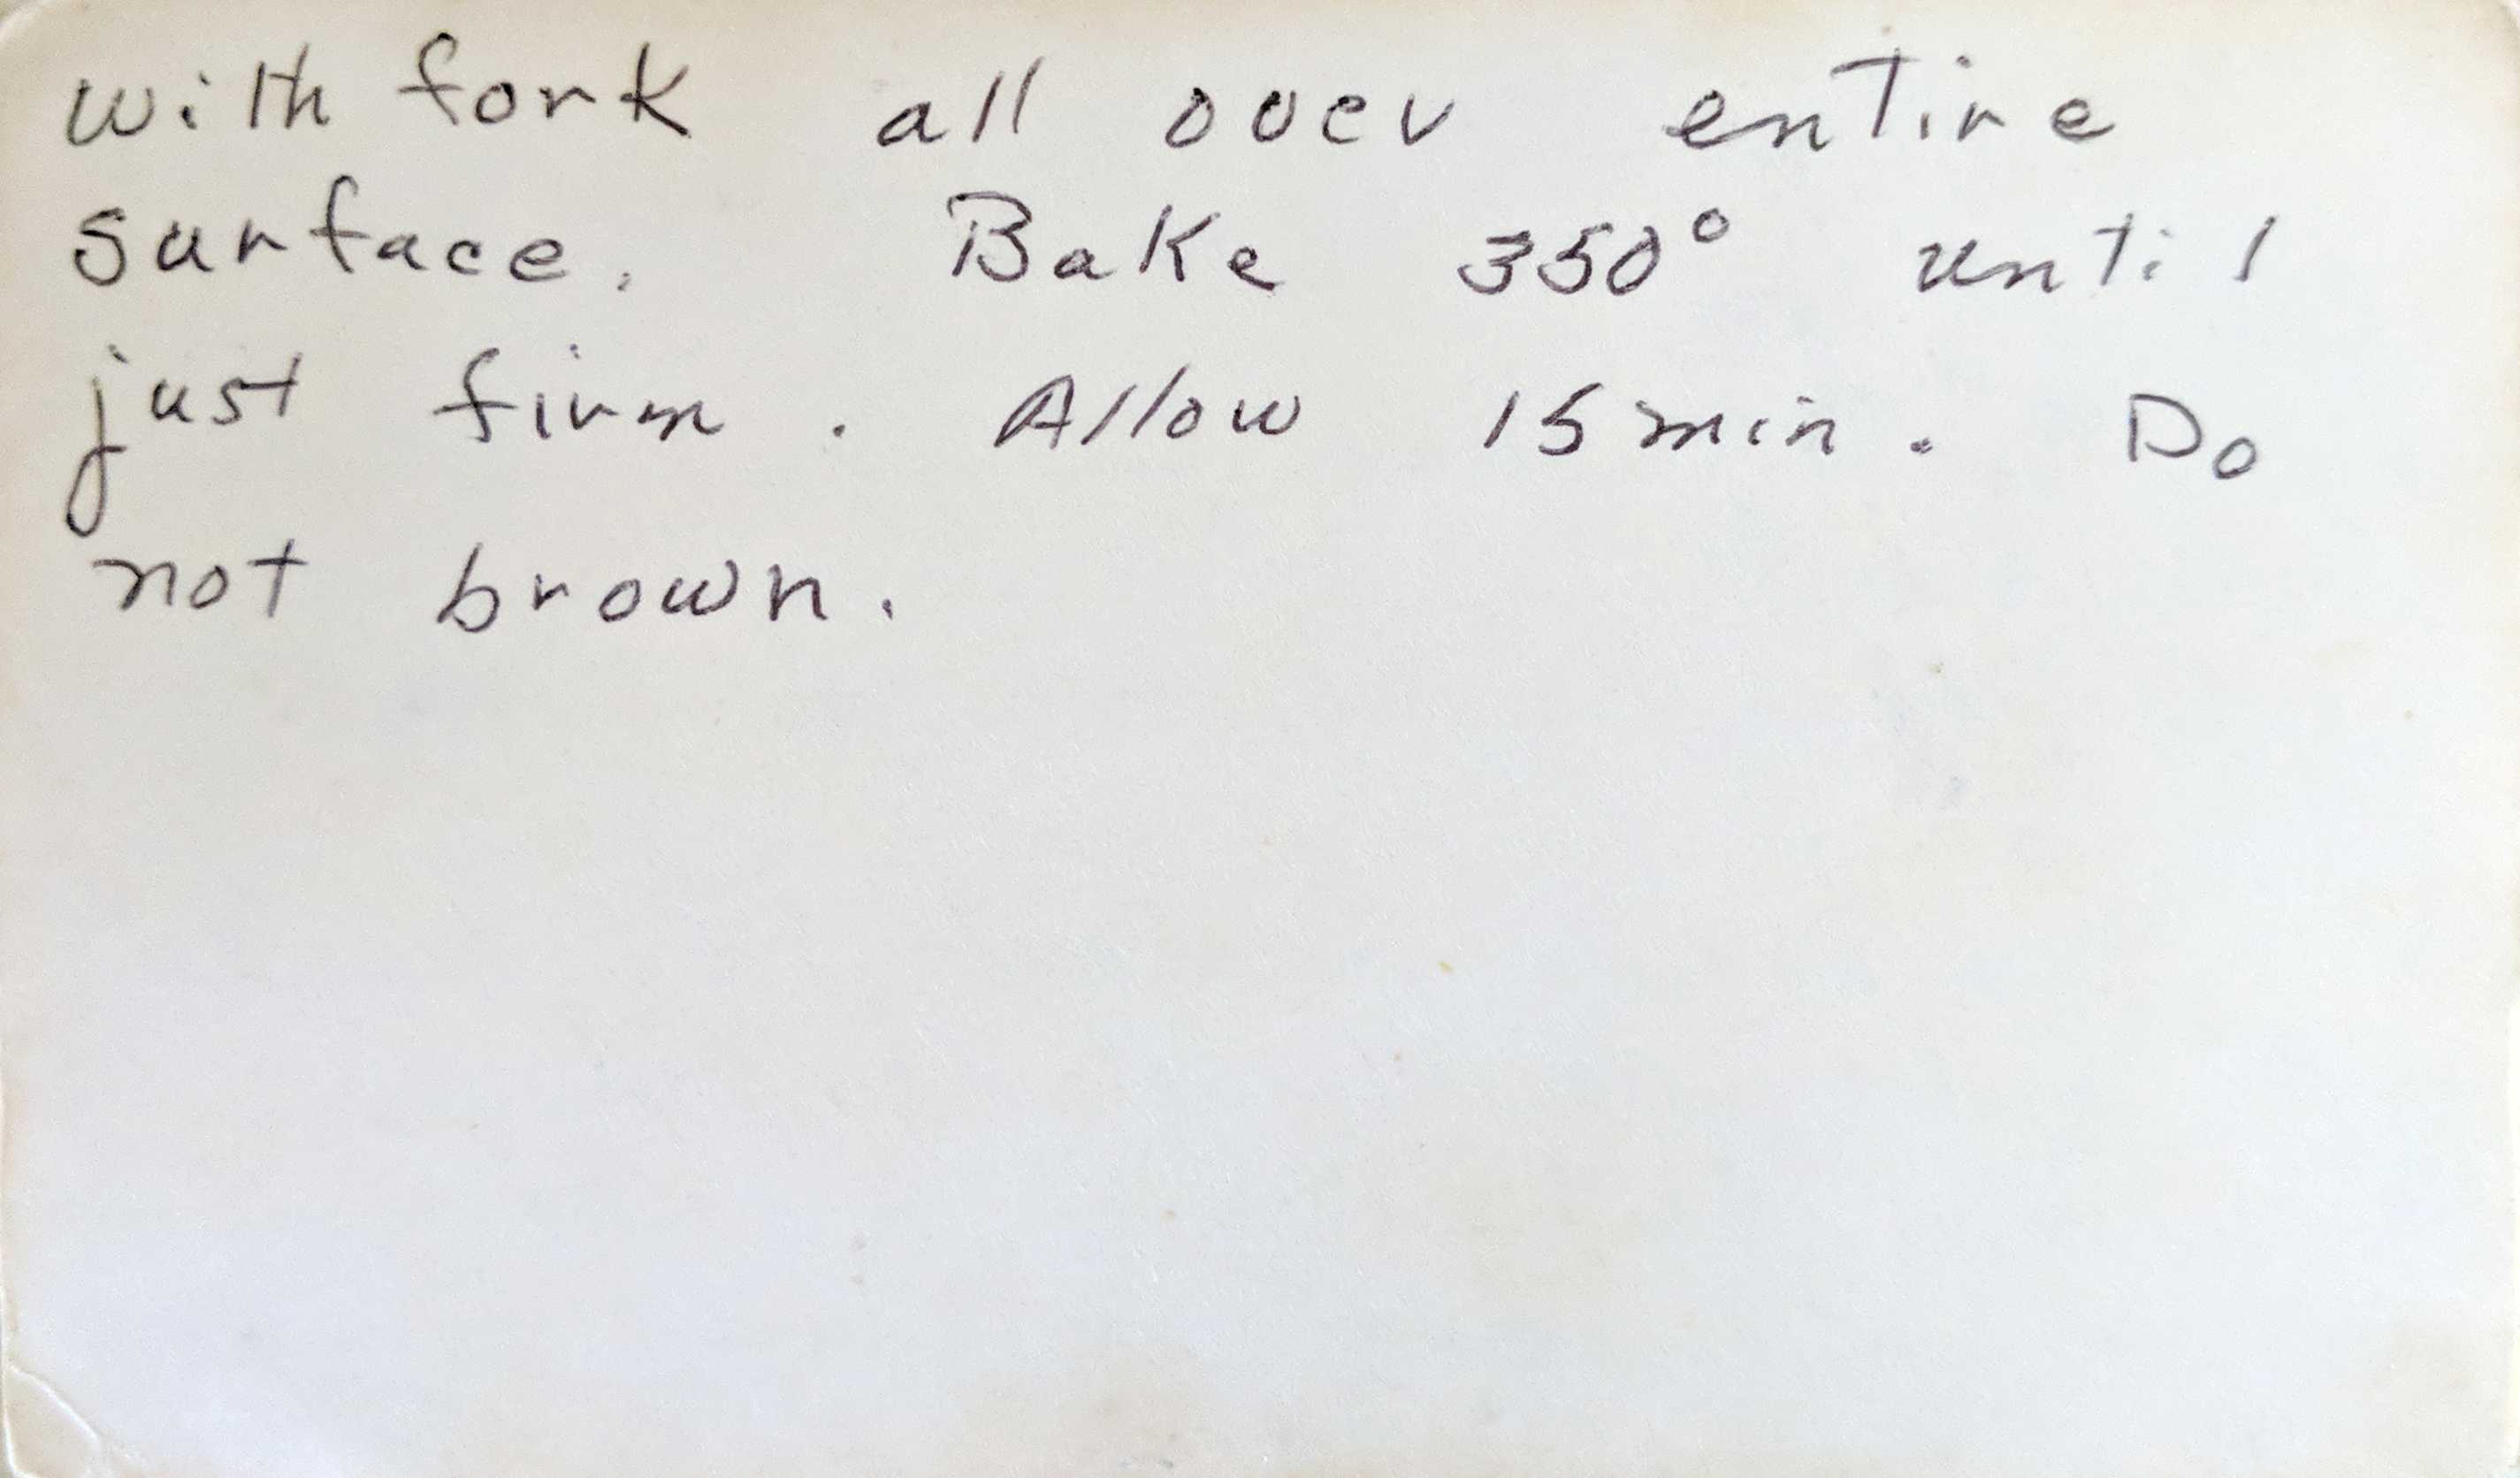 with fork all over entire
surface. Bake 350° until
just firm. Allow 15 min. Do
not brown.